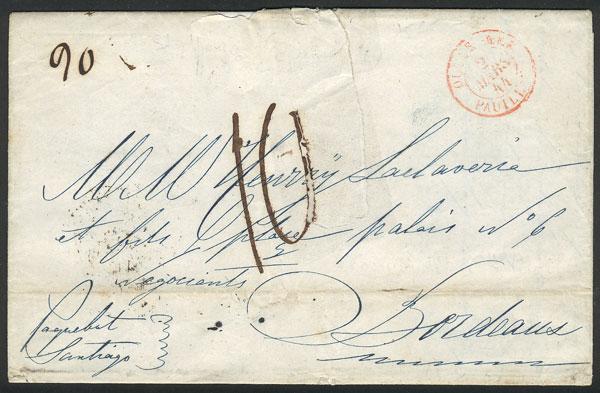 90
OUTRE-MER
2
MARS
44
PAUILLAC
10
M. M. Henry Laclaverie
et fils place palais No 6
négociants
Bordeaux
Paquebot
Santiago